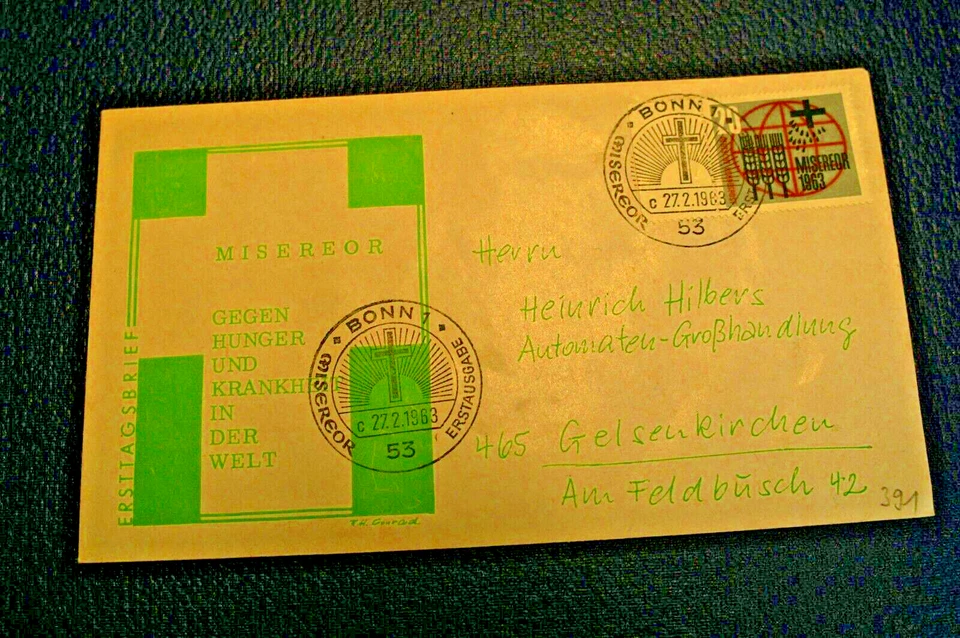 ERSTTAGSBRIEF
MISEREOR
GEGEN
HUNGER
UND
KRANKHEIT
IN
DER
WELT
BONN 1
MISEREOR
ERSTAUSGABE
c 27.2.1963
53
BONN 1
MISEREOR
c 27.2.1963
53
MISEREOR
1963
Herrn
Heinrich Hilbers
Automaten-Großhandlung
465 Gelsenkirchen
Am Feldbusch 42
391